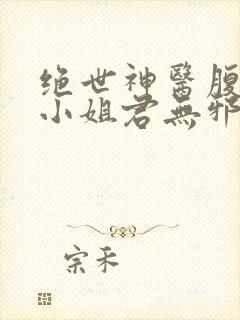 绝世神醫腹
小姐君無邪
宗禾